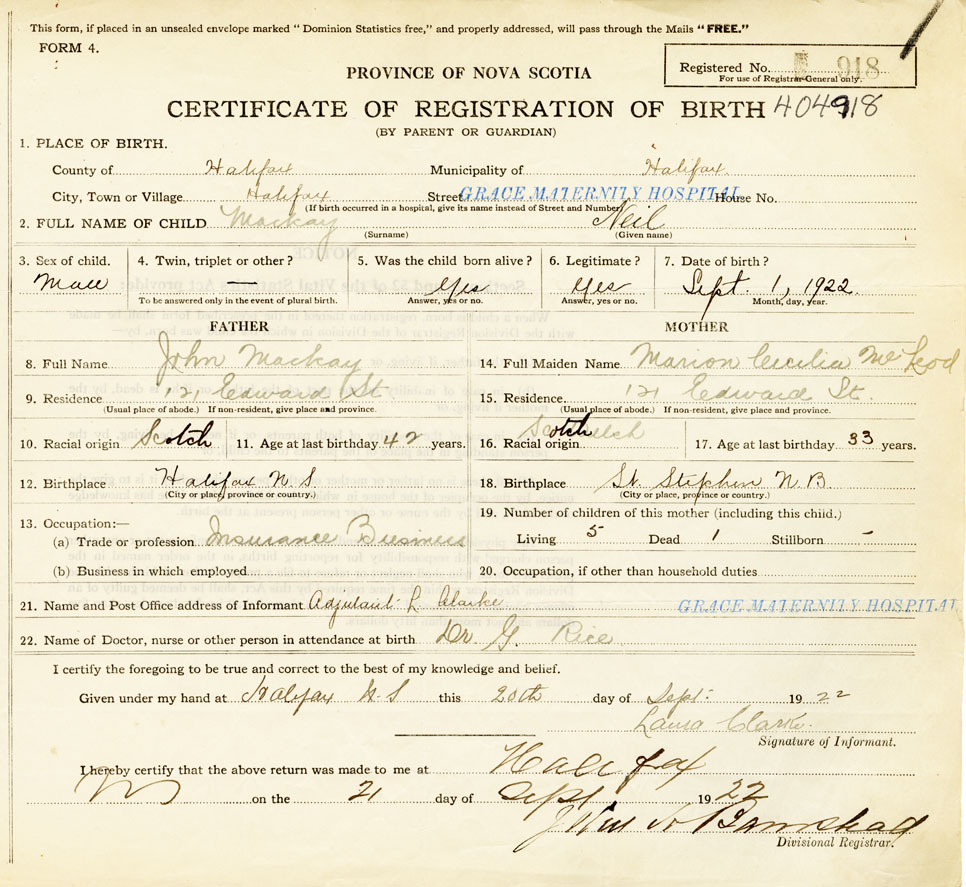 This form, if placed in an unsealed envelope marked "Dominion Statistics free," and properly addressed, will pass through the Mails "FREE."
FORM 4.
Registered No. 918
For use of Registrar-General only.
PROVINCE OF NOVA SCOTIA
CERTIFICATE OF REGISTRATION OF BIRTH 404918
(BY PARENT OR GUARDIAN)
1. PLACE OF BIRTH.
County of Halifax Municipality of Halifax.
City, Town or Village Halifax Street GRACE MATERNITY HOSPITAL House No.
(If birth occurred in a hospital, give its name instead of Street and Number)
2. FULL NAME OF CHILD Mackay Neil
(Surname) (Given name)
3. Sex of child. 4. Twin, triplet or other? 5. Was the child born alive? 6. Legitimate? 7. Date of birth?
Male — Yes Yes Sept. 1, 1922.
To be answered only in the event of plural birth. Answer, yes or no. Answer, yes or no. Month, day, year.
FATHER MOTHER
8. Full Name John Mackay 14. Full Maiden Name Marion Cecilia McLeod
9. Residence 121 Edward St 15. Residence. 121 Edward St.
(Usual place of abode.) If non-resident, give place and province. (Usual place of abode.) If non-resident, give place and province.
10. Racial origin Scotch 11. Age at last birthday 42 years. 16. Racial origin Scotch 17. Age at last birthday 33 years.
12. Birthplace Halifax N.S. 18. Birthplace St. Stephen N.B.
(City or place, province or country.) (City or place, province or country.)
13. Occupation:— 19. Number of children of this mother (including this child.)
(a) Trade or profession Insurance Business Living 5 Dead 1 Stillborn -
(b) Business in which employed 20. Occupation, if other than household duties
21. Name and Post Office address of Informant Adjutant L Clarke GRACE MATERNITY HOSPITAL
22. Name of Doctor, nurse or other person in attendance at birth Dr. G. Rice
I certify the foregoing to be true and correct to the best of my knowledge and belief.
Given under my hand at Halifax N.S this 20th day of Sept. 1922
Laura Clarke.
Signature of Informant.
I hereby certify that the above return was made to me at Halifax
on the 21 day of Sept 1922
Divisional Registrar.